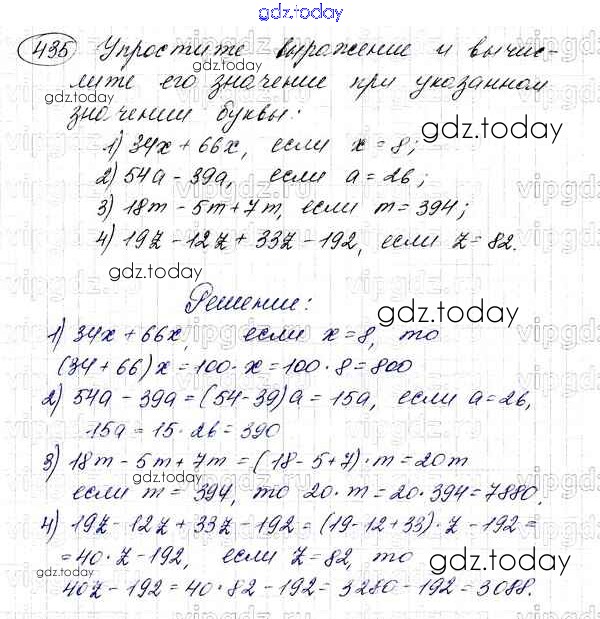 gdz.today
435 Упростите выражение и вычис-
лите его значение при указанном
значении буквы:
gdz.today
1) 34x + 66x, если x = 8;
2) 54a - 39a, если a = 26;
3) 18m - 5m + 7m, если m = 394;
4) 19z - 12z + 33z - 192, если z = 82.
gdz.today
Решение:
gdz.today
1) 34x + 66x, если x = 8, то
(34 + 66)x = 100 · x = 100 · 8 = 800
2) 54a - 39a = (54 - 39)a = 15a, если a = 26,
15a = 15 · 26 = 390
3) 18m - 5m + 7m = (18 - 5 + 7) · m = 20m
если m = 394, то 20 · m = 20 · 394 = 7880.
4) 19z - 12z + 33z - 192 = (19 - 12 + 33) · z - 192 =
= 40 · z - 192, если z = 82, то
40z - 192 = 40 · 82 - 192 = 3280 - 192 = 3088.
gdz.today
gdz.today
gdz.today